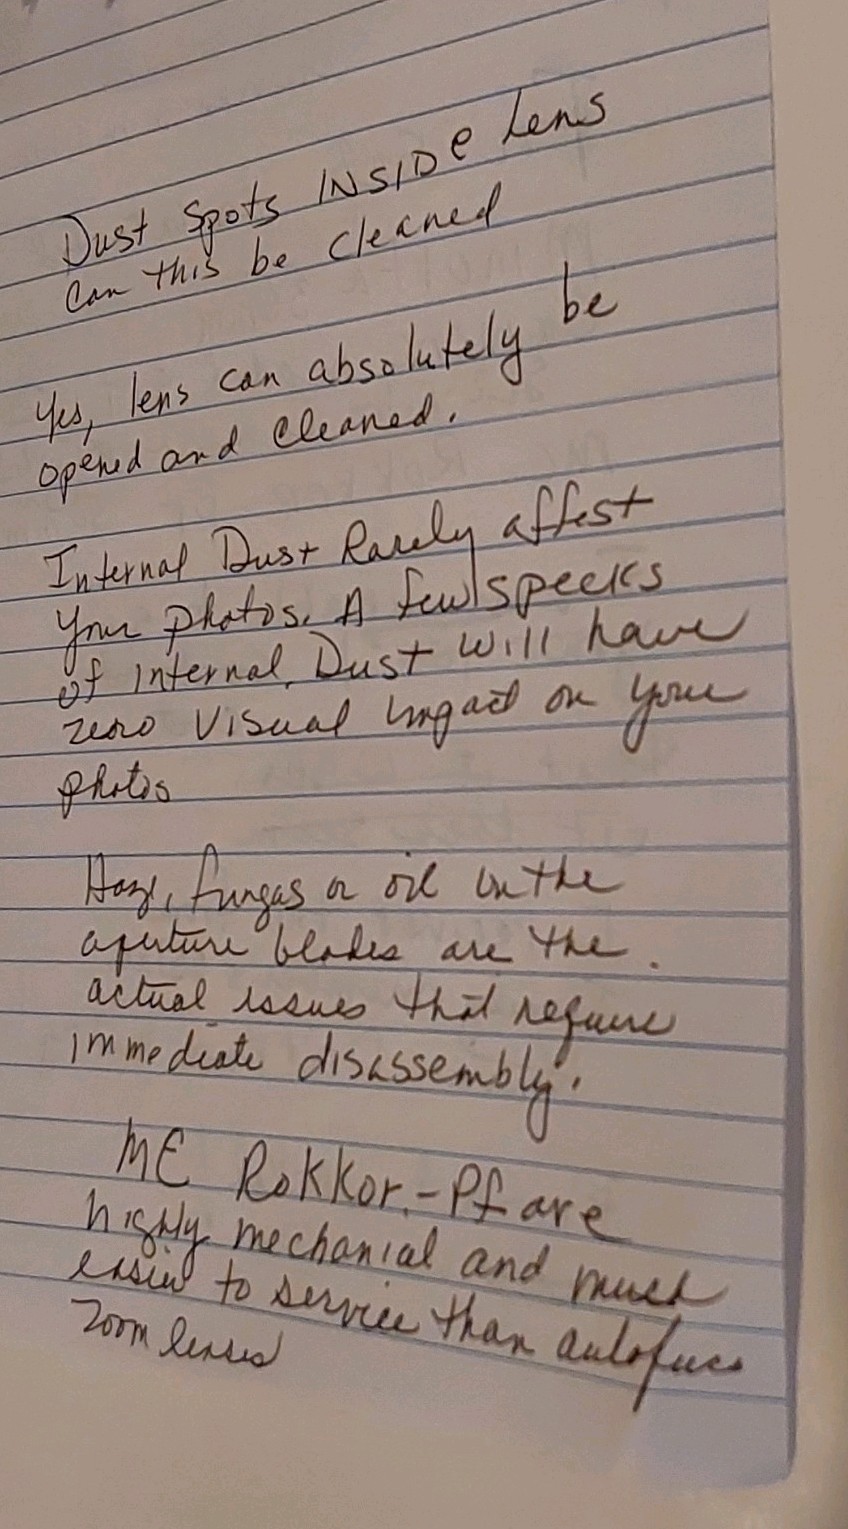 Dust Spots INSIDe Lens
Can this be cleaned
Yes, lens can absolutely be
opened and cleaned.
Internal Dust Rarely affest
your photos. A few specks
of internal Dust will have
zero visual impact on your
photos
Haze, fungas or oil in the
aperture blades are the
actual issues that require
immediate disassembly.
MC Rokkor-Pf are
highly mechanial and much
easier to service than autofucs
zoom lenses